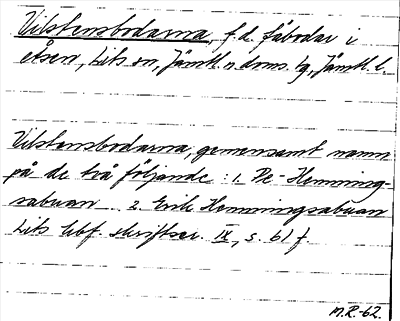 Vilstensbodarna, f.d. fäbodar i
åsen, Lits sn, Jämtl. n doms. tg, Jämtl. l.
Vilstensbodarna, gemensamt namn
på de två följande: 1. Pe-Henning-
sabuan 2. Erik Henningsabuan
Lits hbf. skriftser. IX, s. 61 f.
M.R.-62.